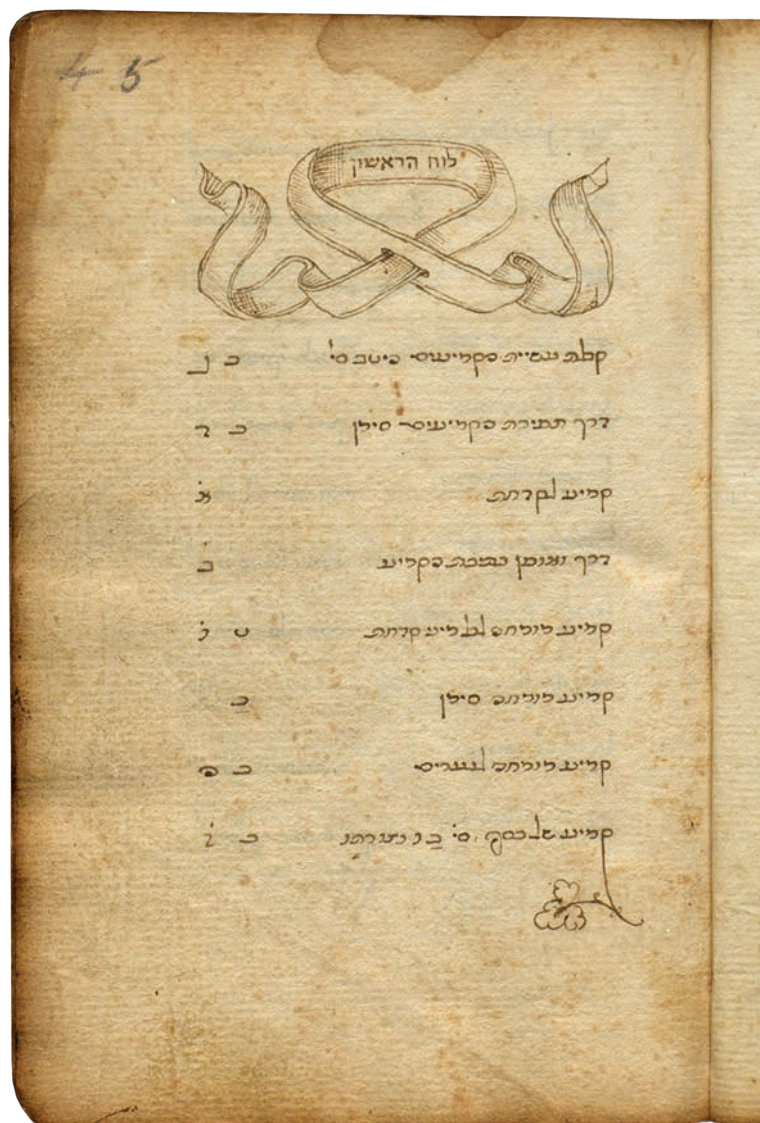 45
לוח הראשון
קבלת עשיית הקמיעות היטב סי' כ ג
דרך תפירת הקמיעות סימן כ ד
קמיע לקדחת א
דרך ואופן כתיבת הקמיע ב
קמיע מומחה לכל מיני קדחת ט ו
קמיע מומחה סימן כ
קמיע מומחה לנערים כ ה
קמיע של כסף סי' כ ו